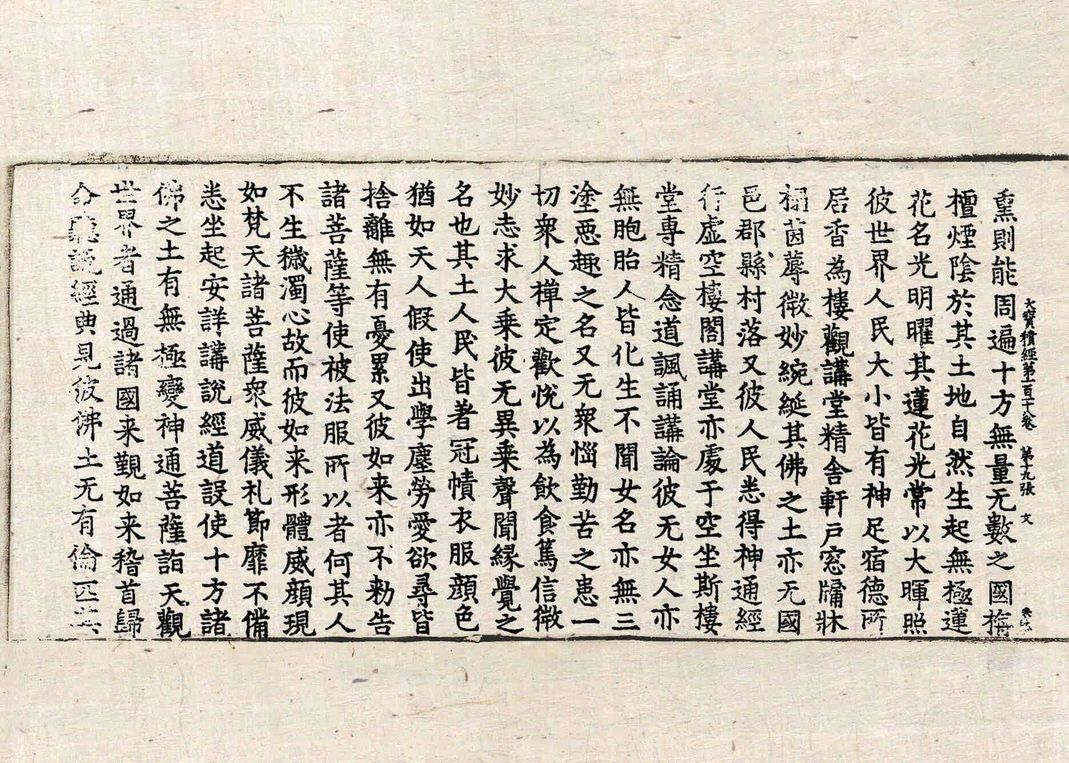 熏則能周遍十方無量无數之國栴
大寶積經第一百十八卷 第十九張 文
檀煙陰於其土地自然生起無極蓮
花名光明曜其蓮花光常以大暉照
彼世界人民大小皆有神足宿德所
居香為樓觀講堂精舍軒戶窓牖牀
榻茵蓐微妙綩綖其佛之土亦无國
邑郡縣村落又彼人民悉得神通經
行虛空樓閣講堂亦處于空坐斯樓
堂專精念道諷誦講論彼无女人亦
無胞胎人皆化生不聞女名亦無三
塗惡趣之名又无衆惱勤苦之患一
切衆人禪定歡悅以為飲食篤信微
妙志求大乘彼无異乘聲聞緣覺之
名也其土人民皆著冠幘衣服顏色
猶如天人假使出學塵勞愛欲尋皆
捨離無有憂累又彼如来亦不勑告
諸菩薩等使被法服所以者何其人
不生穢濁心故而彼如来形體威顏現
如梵天諸菩薩衆威儀礼節靡不備
悉坐起安詳講說經道設使十方諸
佛之土有無極變神通菩薩詣天觀
世界者通過諸國来覲如来稽首歸
命聽說經典見彼佛土无有倫匹其